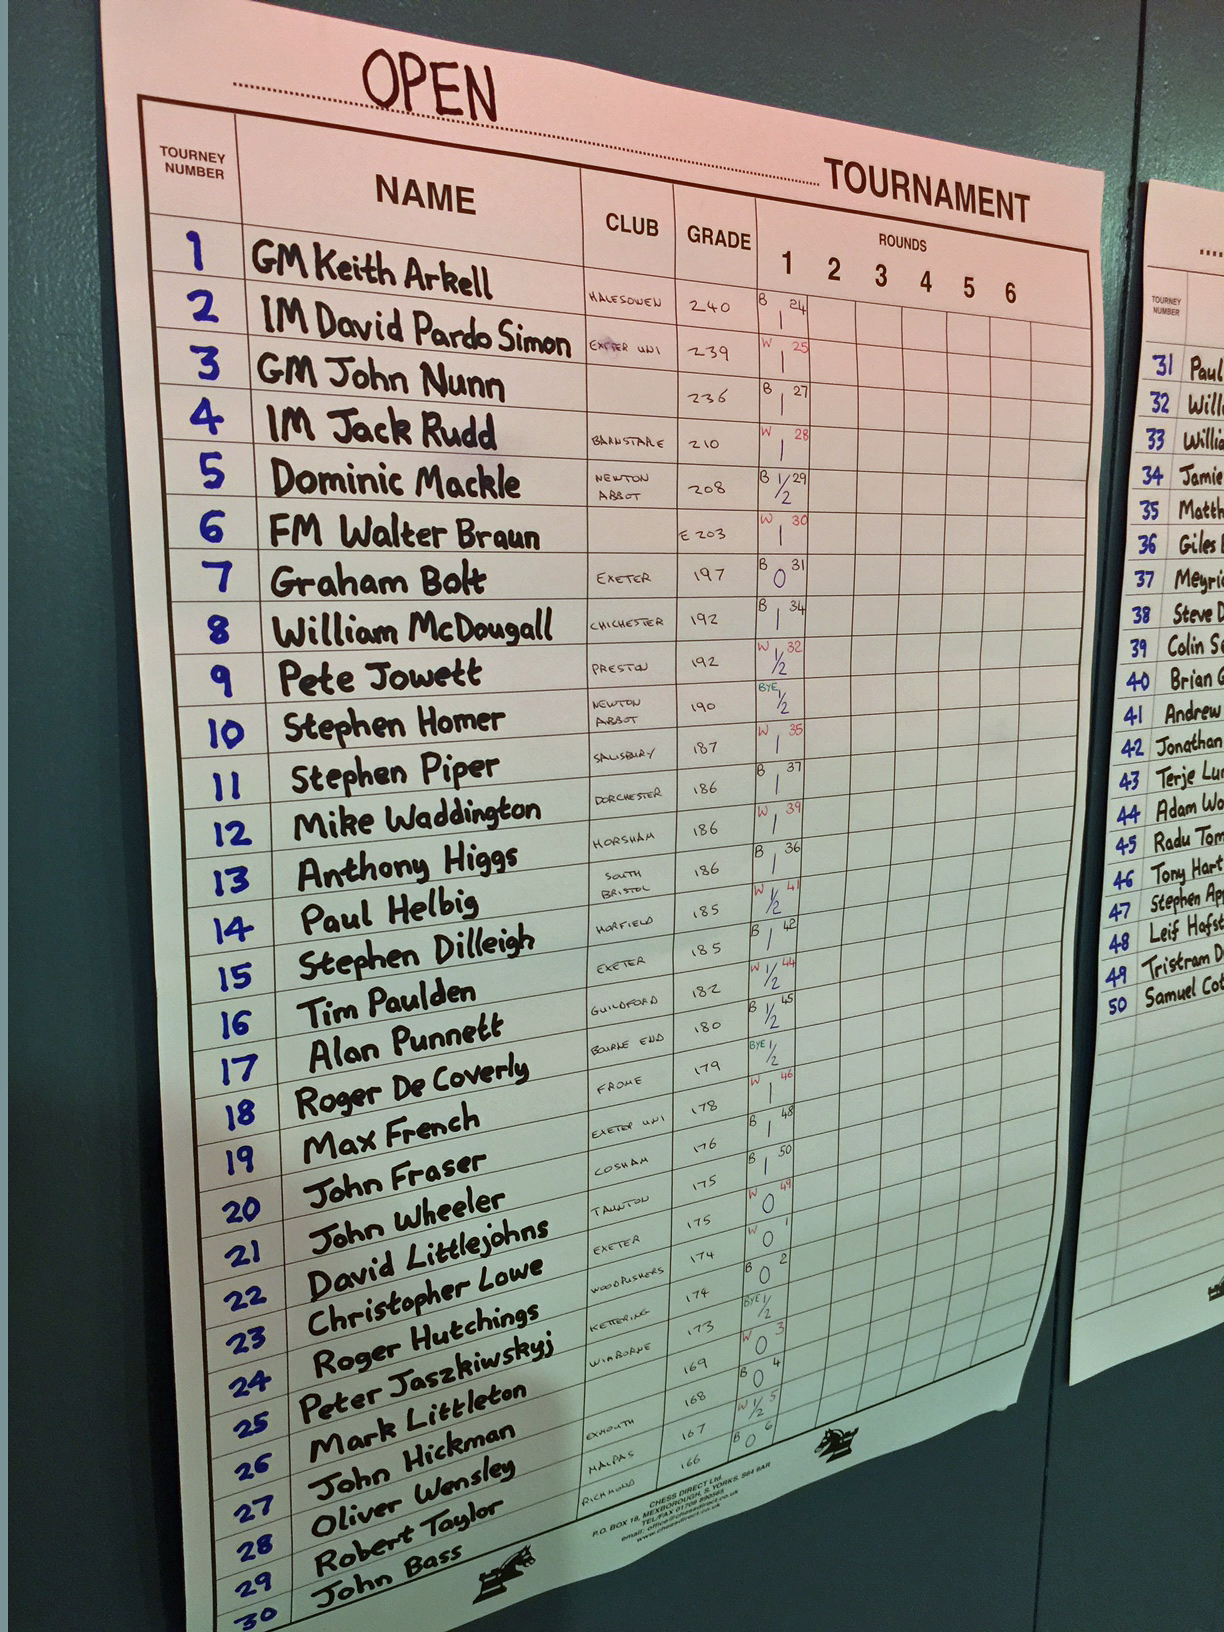 OPEN TOURNAMENT
TOURNEY NUMBER NAME CLUB GRADE ROUNDS
1 2 3 4 5 6
1 GM Keith Arkell HALESOWEN 240 B 24 1
2 IM David Pardo Simon EXETER UNI 239 W 25 1
3 GM John Nunn 236 B 27 1
4 IM Jack Rudd BARNSTAPLE 210 W 28 1
5 Dominic Mackle NEWTON ABBOT 208 B 29 1/2
6 FM Walter Braun E 203 W 30 1
7 Graham Bolt EXETER 197 B 31 0
8 William McDougall CHICHESTER 192 B 34 1
9 Pete Jowett PRESTON 192 W 32 1/2
10 Stephen Homer NEWTON ABBOT 190 BYE 1/2
11 Stephen Piper SALISBURY 187 W 35 1
12 Mike Waddington DORCHESTER 186 B 37 1
13 Anthony Higgs HORSHAM 186 W 39 1
14 Paul Helbig SOUTH BRISTOL 186 B 36 1
15 Stephen Dilleigh HORFIELD 185 W 41 1/2
16 Tim Paulden EXETER 185 B 42 1
17 Alan Punnett GUILDFORD 182 W 44 1/2
18 Roger De Coverly BOURNE END 180 B 45 1/2
19 Max French FROME 179 BYE 1/2
20 John Fraser EXETER UNI 178 W 46 1
21 John Wheeler COSHAM 176 B 48 1
22 David Littlejohns TAUNTON 175 B 50 1
23 Christopher Lowe EXETER 175 W 49 0
24 Roger Hutchings WOODPUSHERS 174 W 1 0
25 Peter Jaszkiwskyj KETTERING 174 B 2 0
26 Mark Littleton WIMBORNE 173 BYE 1/2
27 John Hickman 169 W 3 0
28 Oliver Wensley EXMOUTH 168 B 4 0
29 Robert Taylor MALPAS 167 W 5 1/2
30 John Bass RICHMOND 166 B 6 0
CHESS DIRECT Ltd.
P.O. BOX 18, MEXBOROUGH, S. YORKS, S64 9AR
TEL/FAX 01709
email: office@chessdirect.co.uk
www.chessdirect.co.uk
TOURNEY NUMBER
31 Paul
32 Will
33 Willia
34 Jamie
35 Matth
36 Giles
37 Meyri
38 Steve D
39 Colin Se
40 Brian G
41 Andrew
42 Jonathan
43 Terje Lu
44 Adam Wo
45 Radu Tom
46 Tony Hart
47 Stephen Ap
48 Leif Hafst
49 Tristram D
50 Samuel Cot